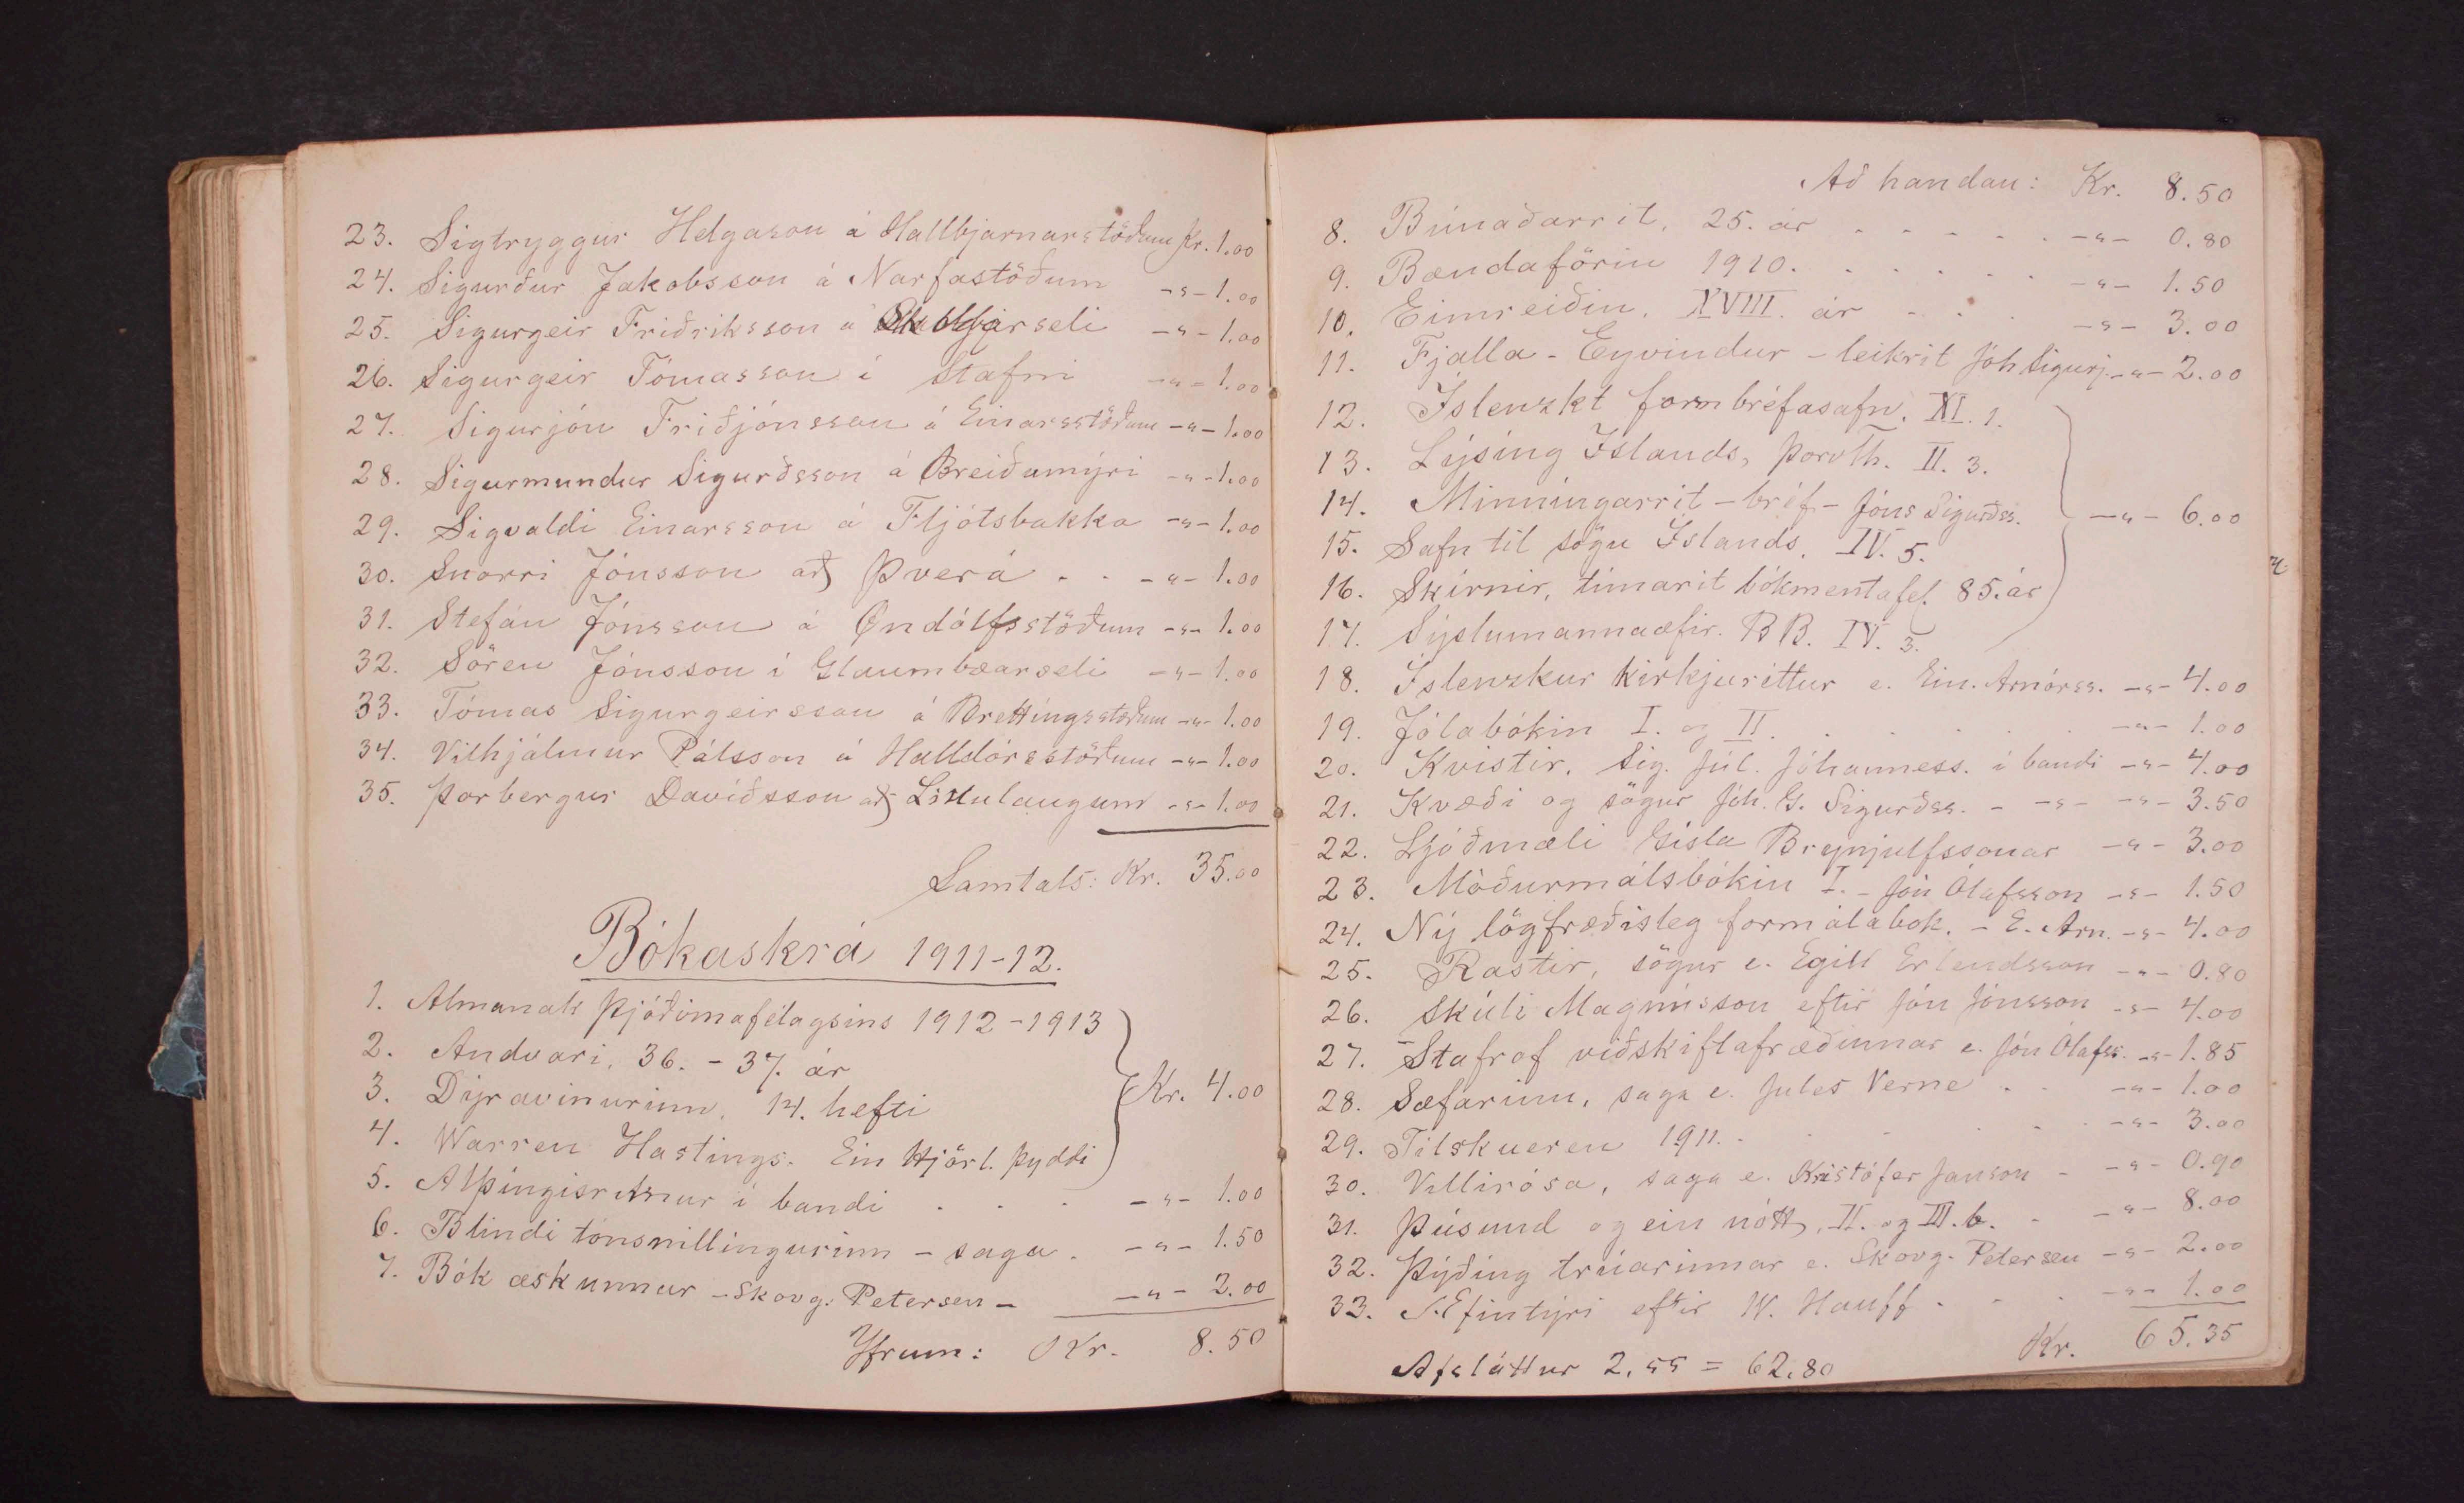 23. Sigtryggur Helgason á Hallbjarnarstöðum Kr. 1.00
24. Sigurður Jakobsson á Narfastöðum -"- 1.00
25. Sigurgeir Friðriksson á Skógarseli -"- 1.00
26. Sigurgeir Tómasson í Stafni -"- 1.00
27. Sigurjón Friðjónsson á Einarsstöðum -"- 1.00
28. Sigurmundur Sigurðsson á Breiðumýri -"- 1.00
29. Sigvaldi Einarsson á Fljótsbakka -"- 1.00
30. Snorri Jónsson að Þverá . . -"- 1.00
31. Stefán Jónsson á Öndólfsstöðum -"- 1.00
32. Sören Jónsson í Glaumbæarseli -"- 1.00
33. Tómas Sigurgeirsson á Brettingsstöðum -"- 1.00
34. Vilhjálmur Pálsson á Halldórsstöðum -"- 1.00
35. Þorbergur Davíðsson að Litlulaugum -"- 1.00
Samtals: Kr. 35.00
Bókaskrá 1911-12.
1. Almanak Þjóðvinafélagsins 1912-1913
2. Andvari, 36. - 37. ár
3. Dýravinurinn, 14. hefti
4. Warren Hastings. Ein Hjörl. þyddi
Kr. 4.00
5. Alþingisrímur í bandi . . . -"- 1.00
6. Blindi tónsnillingurinn - saga . -"- 1.50
7. Bók æskunnur - Skovg. Petersen - -"- 2.00
Yfrum: Kr. 8.50
Að handan: Kr. 8.50
8. Búnaðarrit, 25. ár . . . . . -"- 0.80
9. Bændaförin 1910. . . . . . -"- 1.50
10. Eimreiðin, XVIII. ár . . . -"- 3.00
11. Fjalla-Eyvindur - leikrit Jóh Sigurj. -"- 2.00
12. Íslenzkt fornbréfasafn. XI. 1.
13. Lýsing Íslands, ÞorvTh. II. 3.
14. Minningarrit - bréf - Jóns Sigurðss.
-"- 6.00
15. Safn til sögu Íslands. IV. 5.
16. Skírnir, tímarit bókmentafél. 85. ár
17. Sýslumannaæfir. BB. IV. 3.
18. Íslenzkur kirkjuréttur e. Ein. Arnórss. -"- 4.00
19. Jólabókin I. og II. . . . . -"- 1.00
20. Kvistir. Sig. Júl. Jóhanness. í bandi -"- 4.00
21. Kvæði og sögur Jóh. G. Sigurðss. - -"- -"- 3.50
22. Ljóðmæli Gísla Brynjulfssonar -"- 3.00
23. Móðurmálsbókin I. - Jón Ólafsson -"- 1.50
24. Ný lögfræðisleg formálabók. - E. Arn. -"- 4.00
25. Rastir, sögur e. Egill Erlendsson -"- 0.80
26. Skúli Magnússon eftir Jón Jónsson -"- 4.00
27. Stafrof viðskiftafræðinnar e. Jón Ólafss. -"- 1.85
28. Sæfarinn, saga e. Jules Verne . . -"- 1.00
29. Tilskueren 1911. . . . . . -"- 3.00
30. Villirósa, saga e. Kristófer Janson - -"- 0.90
31. Þúsund og ein nótt, II. og III. b. . -"- 8.00
32. Þýðing trúarinnar e. Skovg. Petersen -"- 2.00
33. Æfintýri eftir W. Hauff . . . -"- 1.00
Kr. 65.35
Afsláttur 2,55 = 62.80